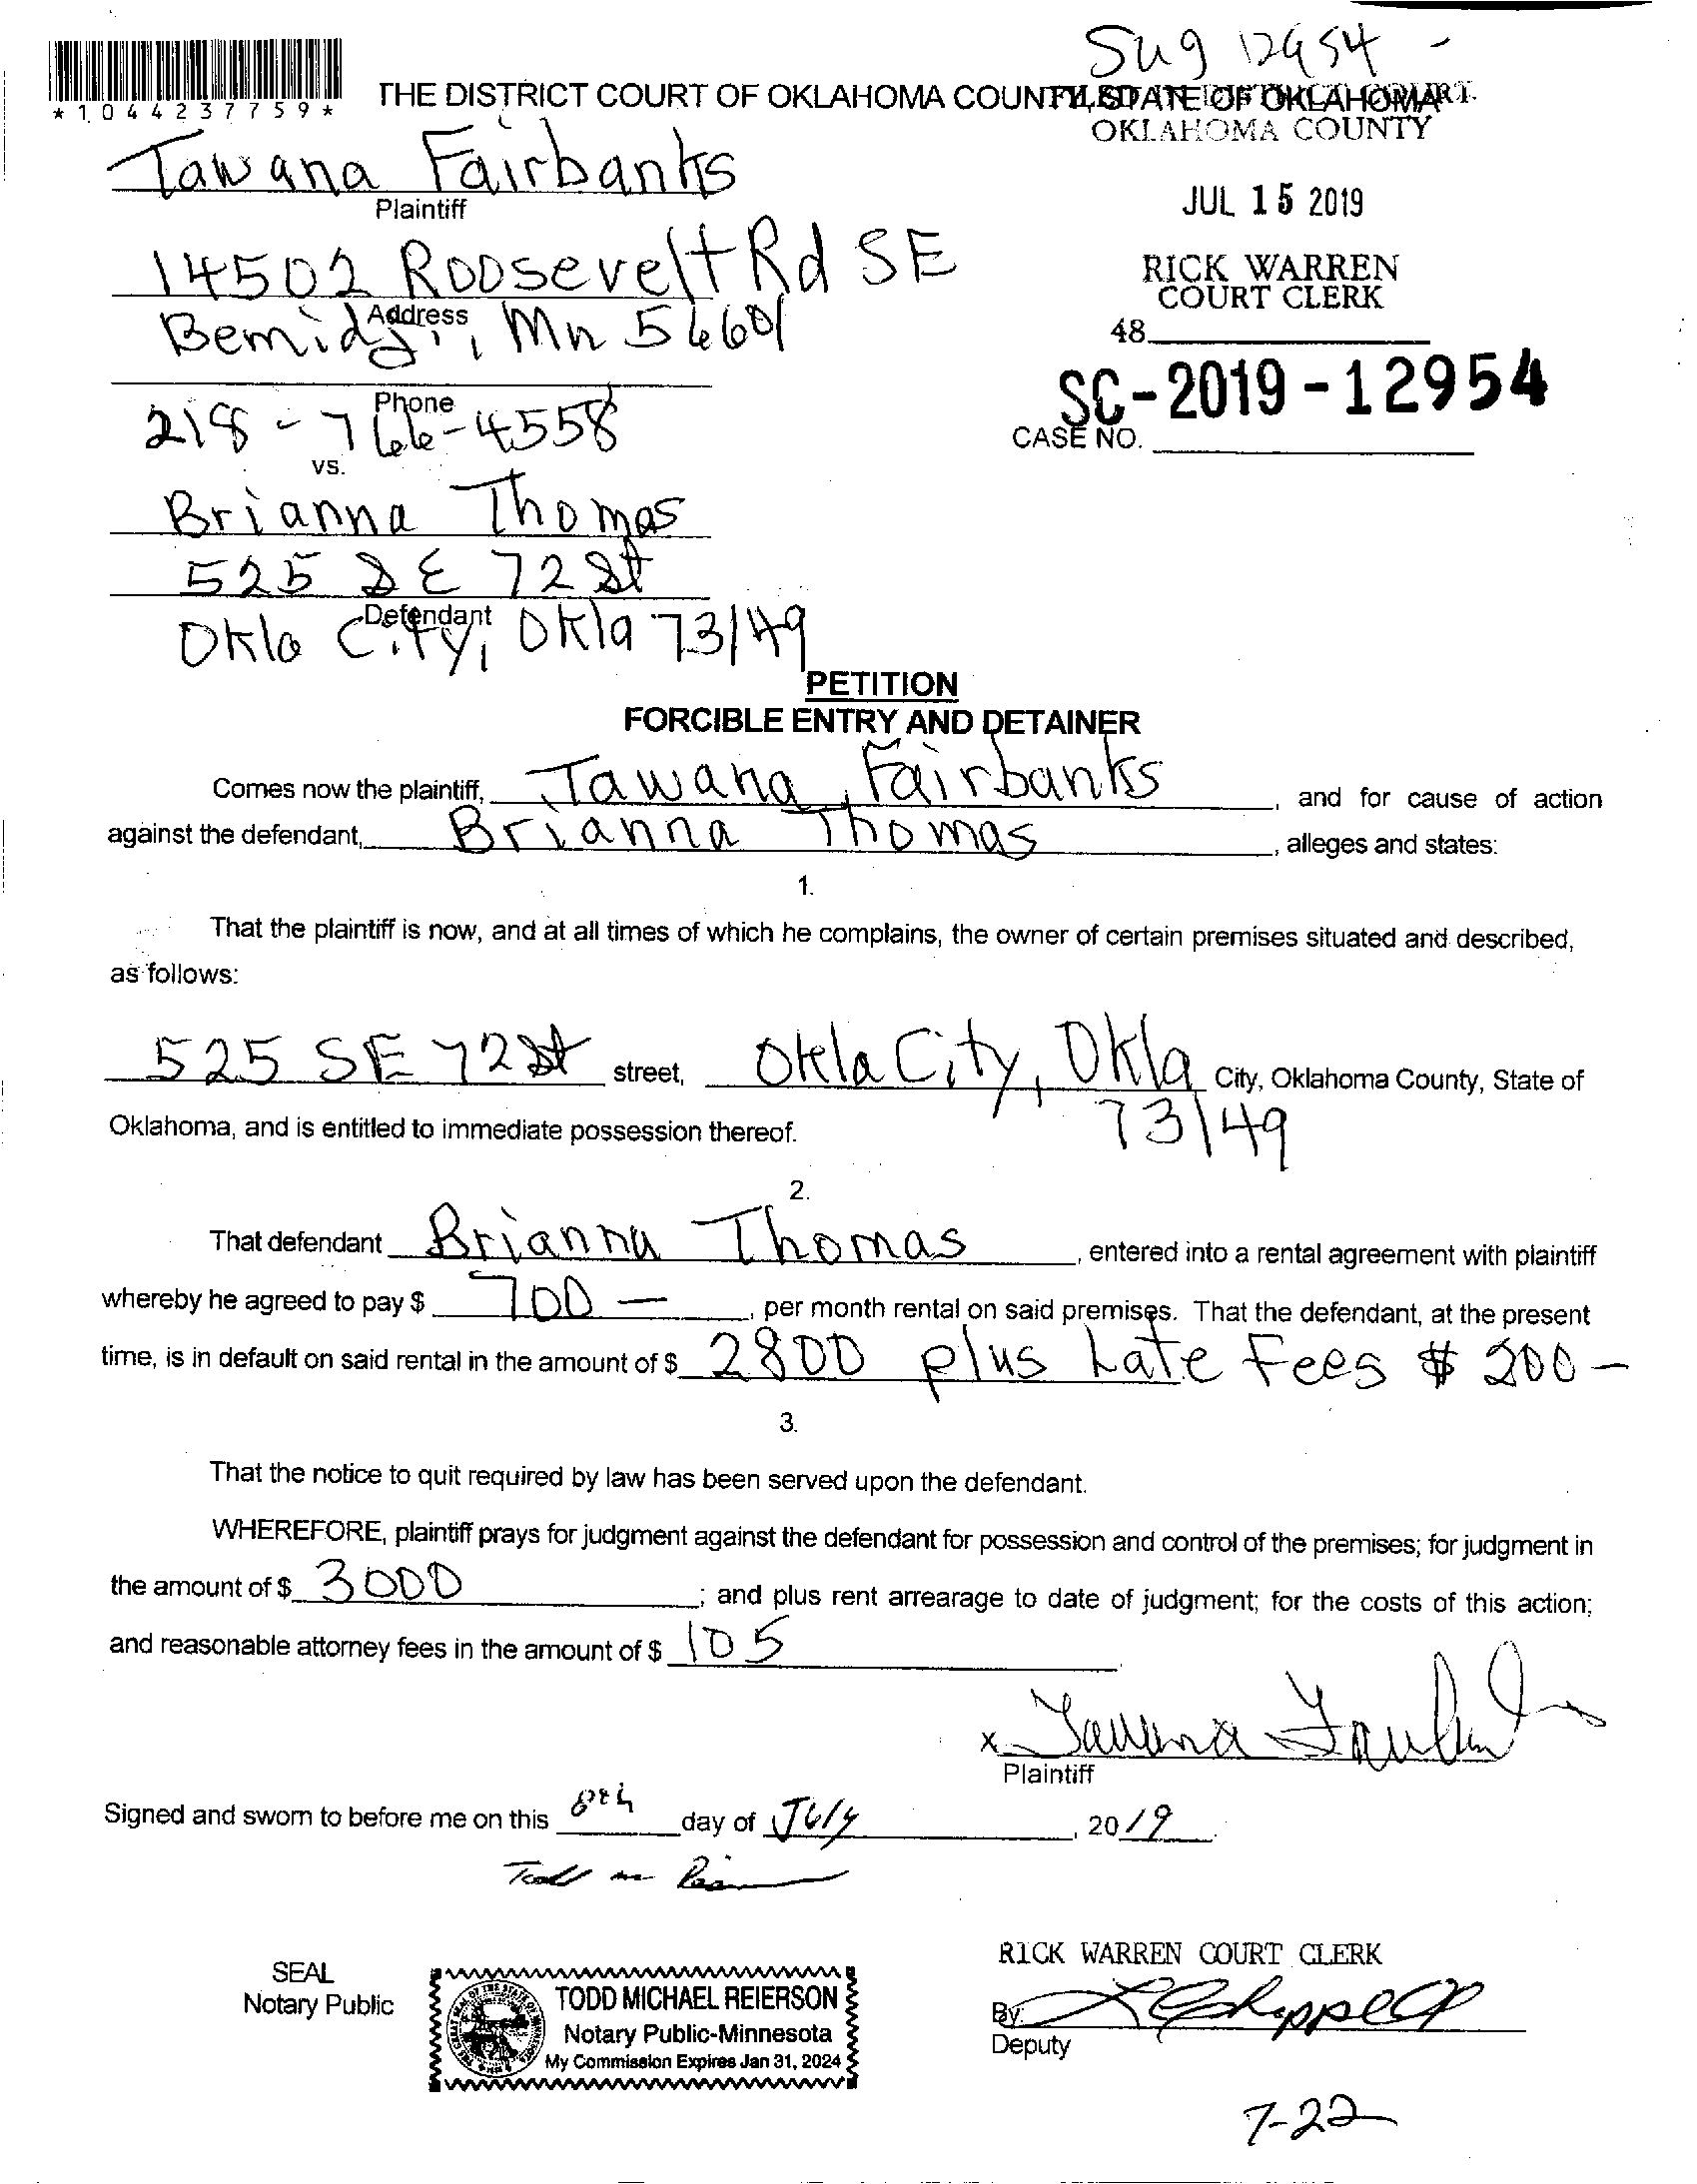 Sug 12954 -
*1044237759*
THE DISTRICT COURT OF OKLAHOMA COUNTY, STATE OF OKLAHOMA
OKLAHOMA COUNTY
Tawana Fairbanks
Plaintiff
JUL 15 2019
14502 Roosevelt Rd SE
RICK WARREN
COURT CLERK
Address
Bemidji, Mn 56601
48
SC-2019-12954
Phone
218-766-4558
CASE NO.
vs.
Brianna Thomas
525 SE 72 St
Defendant
Okla City, Okla 73149
PETITION
FORCIBLE ENTRY AND DETAINER
Comes now the plaintiff, Tawana Fairbanks, and for cause of action
against the defendant, Brianna Thomas, alleges and states:
1.
That the plaintiff is now, and at all times of which he complains, the owner of certain premises situated and described,
as follows:
525 SE 72 St street, Okla City, Okla City, Oklahoma County, State of
73149
Oklahoma, and is entitled to immediate possession thereof.
2.
That defendant Brianna Thomas, entered into a rental agreement with plaintiff
whereby he agreed to pay $ 700 —, per month rental on said premises. That the defendant, at the present
time, is in default on said rental in the amount of $ 2800 plus Late Fees $ 200 —
3.
That the notice to quit required by law has been served upon the defendant.
WHEREFORE, plaintiff prays for judgment against the defendant for possession and control of the premises; for judgment in
the amount of $ 3000; and plus rent arrearage to date of judgment; for the costs of this action;
and reasonable attorney fees in the amount of $ 105
x Tawana Fairbanks
Plaintiff
Signed and sworn to before me on this 8th day of July, 2019.
SEAL
Notary Public
TODD MICHAEL REIERSON
Notary Public-Minnesota
My Commission Expires Jan 31, 2024
RICK WARREN COURT CLERK
By:
Deputy
7-22